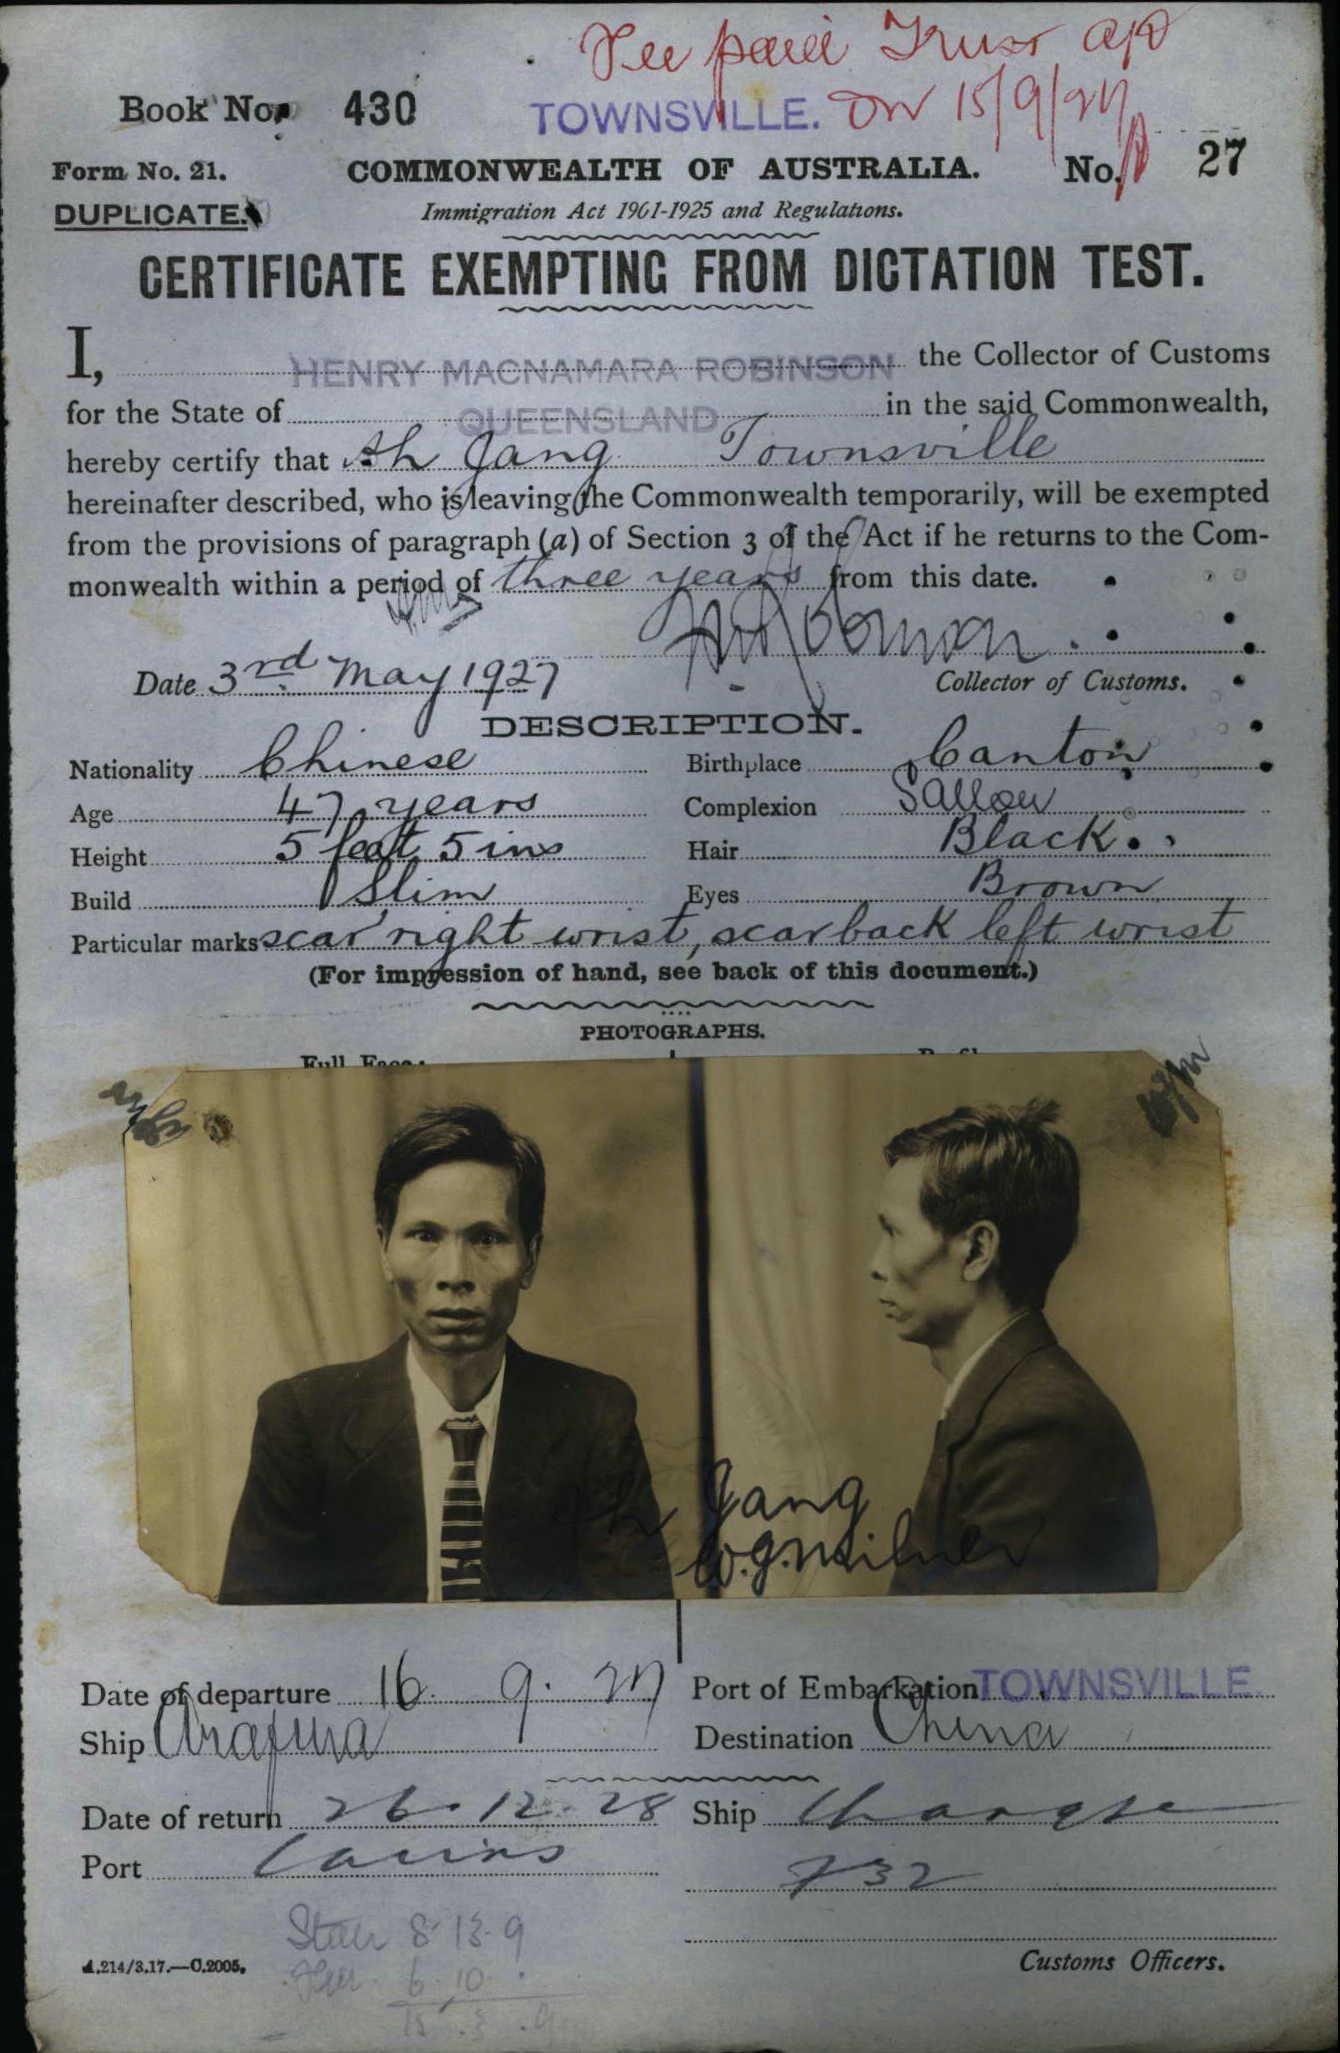 Fee paid Trust a/c
Book No. 430
TOWNSVILLE. on 15/9/27
Form No. 21.
COMMONWEALTH OF AUSTRALIA.
No. 27
DUPLICATE.
Immigration Act 1901-1925 and Regulations.
CERTIFICATE EXEMPTING FROM DICTATION TEST.
I, HENRY MACNAMARA ROBINSON the Collector of Customs
for the State of QUEENSLAND in the said Commonwealth,
hereby certify that Ah Gang Townsville
hereinafter described, who is leaving the Commonwealth temporarily, will be exempted
from the provisions of paragraph (a) of Section 3 of the Act if he returns to the Com-
monwealth within a period of three years from this date.
Date 3rd May 1927
Collector of Customs.
DESCRIPTION.
Nationality Chinese Birthplace Canton
Age 47 years Complexion Sallow
Height 5 feet 5 ins Hair Black
Build Slim Eyes Brown
Particular marks scar right wrist, scar back left wrist
(For impression of hand, see back of this document.)
PHOTOGRAPHS.
Full Face:
Ah Gang
W.G. Milner
Date of departure 16. 9. 27 Port of Embarkation TOWNSVILLE.
Ship Arafura Destination China
Date of return 26.12.28 Ship Changte
Port Cairns 732
8 13 9
A.214/3.17.—C.2005.
Customs Officers.
6 10
15 3 9